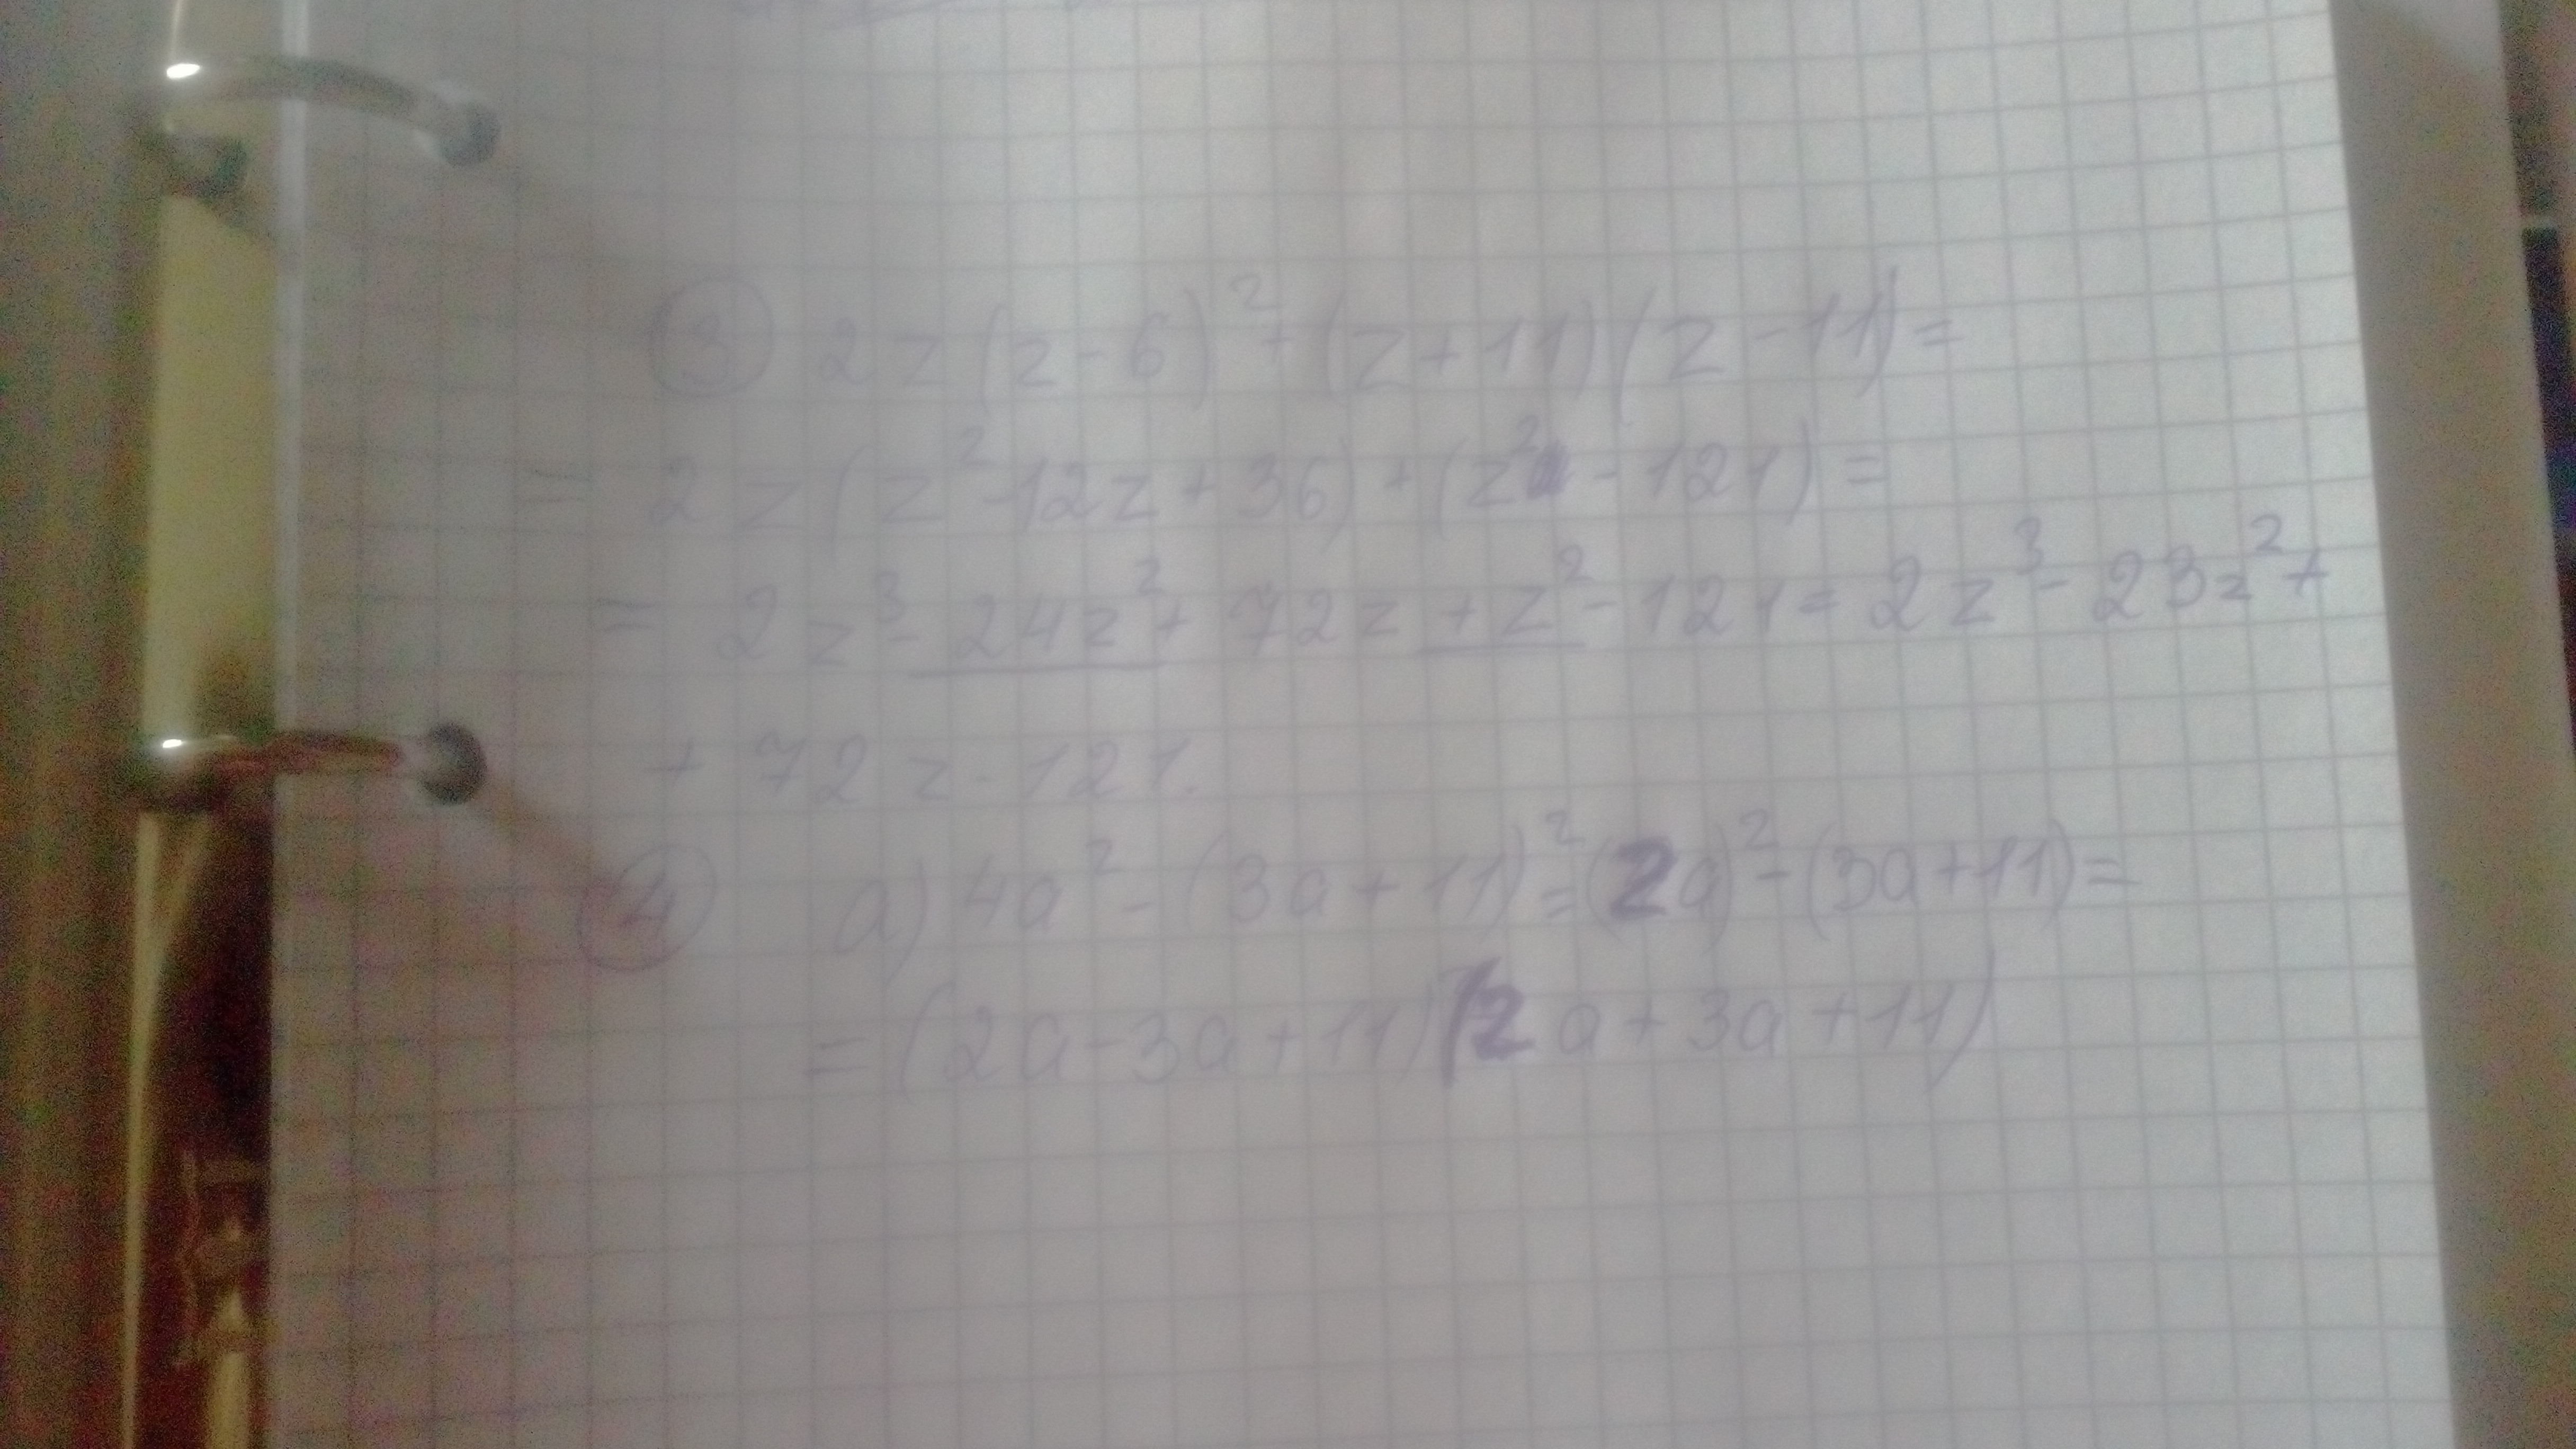 ③ 2z(z-6)²+(z+11)(z-11)=
= 2z(z²-12z+36)+(z²-121)=
= 2z³-24z²+72z+z²-121=2z³-23z²+
+72z-121.
④ a) 4a²-(3a+11)²=(2a)²-(3a+11)=
=(2a-3a+11)(2a+3a+11)